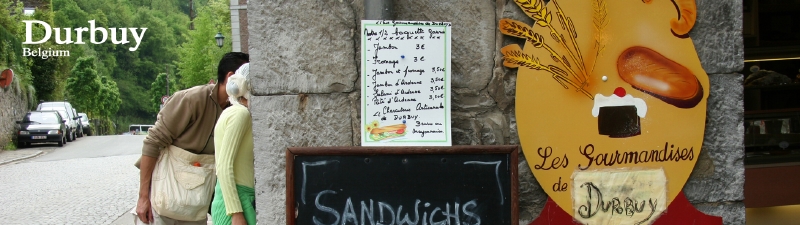 Durbuy
Belgium
Les Gourmandises de Durbuy
Notre 1/2 baguette garnie
- Jambon 3€
- Fromage 3€
- Jambon et fromage 3,50€
- Jambon d'Ardenne 3,50€
d'Ardenne
Pâté d'Ardenne
Charcuterie Artisanale
de DURBUY
SANDWICHS
Les Gourmandises
de DURBUY